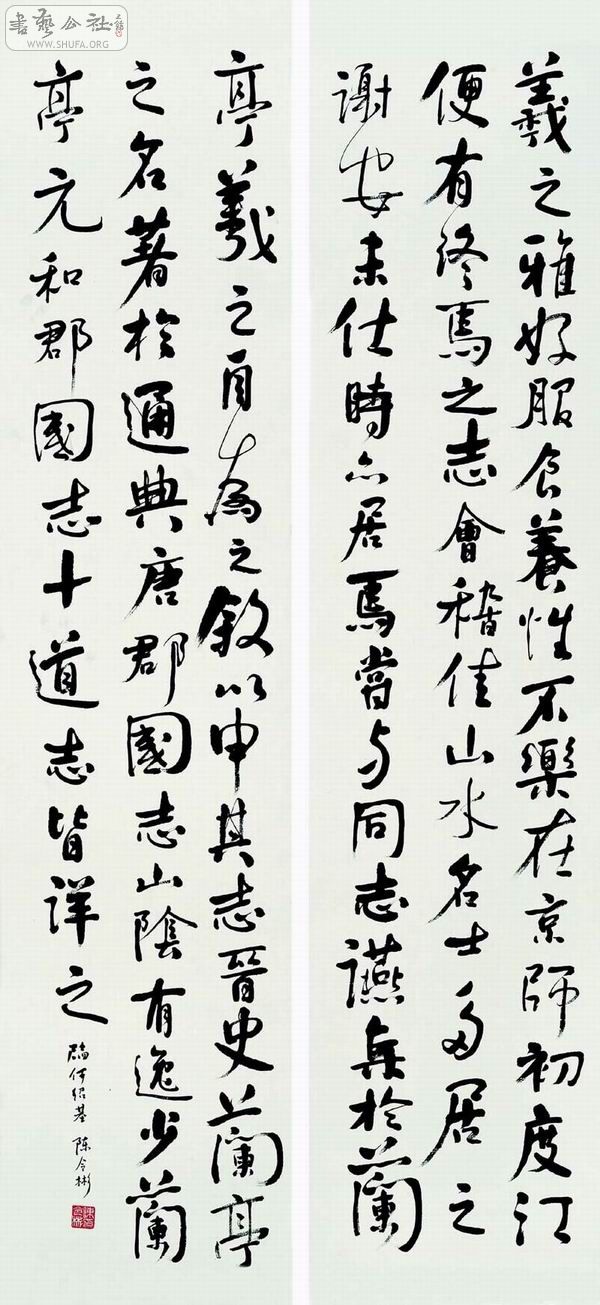 羲之雅好服食養性不樂在京師初度江
便有終焉之志會稽佳山水名士多居之
謝安未仕時亦居焉嘗与同志讌集於蘭
亭羲之自為之敘以申其志晉史蘭亭
之名著於通典唐郡國志山陰有逸少蘭
亭元和郡國志十道志皆詳之
臨何紹基 陈令彬
書藝公社
WWW.SHUFA.ORG